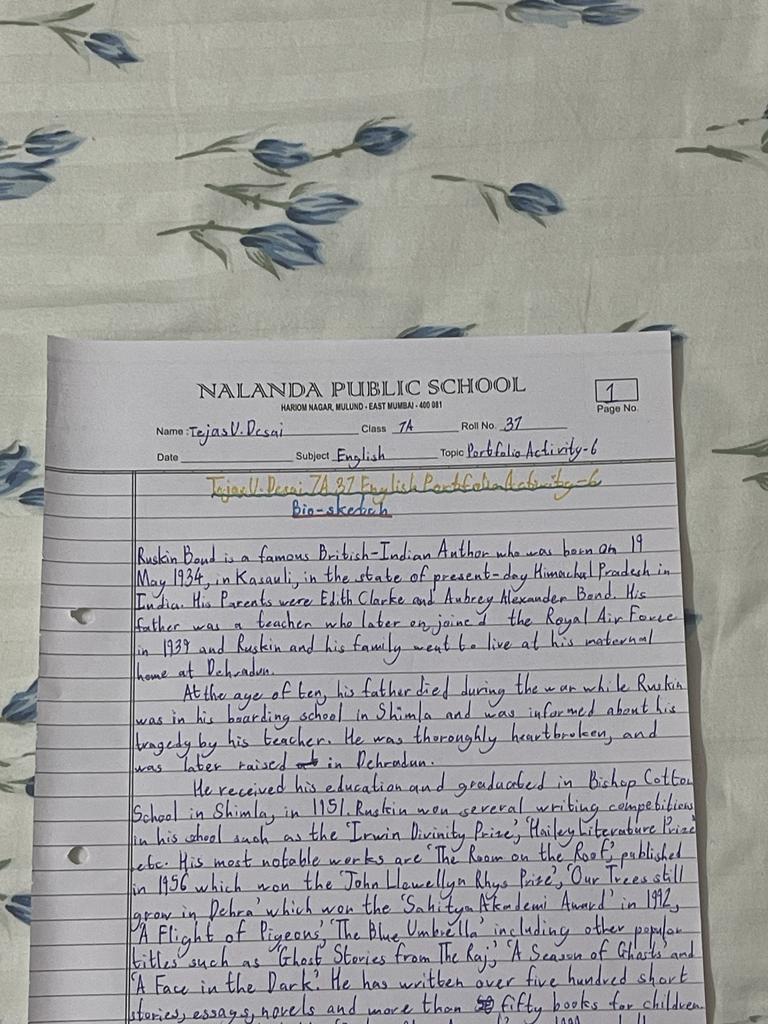 NALANDA PUBLIC SCHOOL
HARIOM NAGAR, MULUND - EAST MUMBAI - 400 081
1
Page No.
Name: Tejas V. Desai Class 7A Roll No. 37
Date Subject English Topic Portfolio Activity-6
Tejas V. Desai 7A 37 English Portfolio Activity-6
Bio-sketch
Ruskin Bond is a famous British-Indian Author who was born on 19
May 1934, in Kasauli, in the state of present-day Himachal Pradesh in
India. His Parents were Edith Clarke and Aubrey Alexander Bond. His
father was a teacher who later on joined the Royal Air Force
in 1939 and Ruskin and his family went to live at his maternal
home at Dehradun.
At the age of ten, his father died during the war while Ruskin
was in his boarding school in Shimla and was informed about his
tragedy by his teacher. He was thoroughly heartbroken, and
was later raised in Dehradun.
He received his education and graduated in Bishop Cotton
School in Shimla, in 1951. Ruskin won several writing competitions
in his school such as the 'Irwin Divinity Prize', 'Hailey Literature Prize'
etc. His most notable works are 'The Room on the Roof', published
in 1956 which won the 'John Llewellyn Rhys Prize', 'Our Trees still
grow in Dehra' which won the 'Sahitya Akademi Award' in 1992,
'A Flight of Pigeons', 'The Blue Umbrella' including other popular
titles such as 'Ghost Stories from The Raj', 'A Season of Ghosts' and
'A Face in the Dark'. He has written over five hundred short
stories, essays, novels and more than fifty books for children.